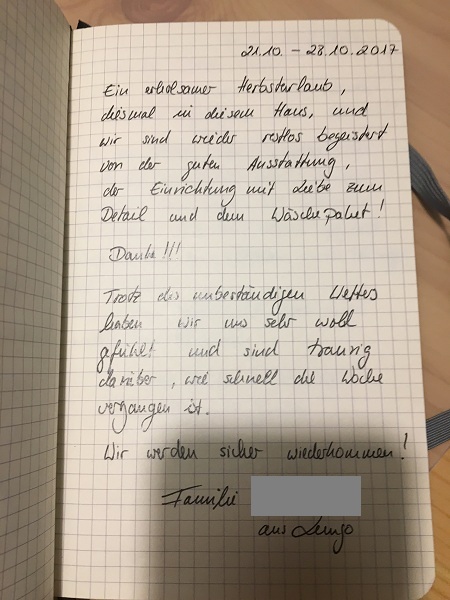 21.10. – 28.10.2017
Ein erholsamer Herbsturlaub,
diesmal in diesem Haus, und
wir sind wieder restlos begeistert
von der guten Ausstattung,
der Einrichtung mit Liebe zum
Detail und dem Wäschepaket!
Danke!!!
Trotz des unbeständigen Wetters
haben wir uns sehr wohl
gefühlt und sind traurig
darüber, wie schnell die Woche
vergangen ist.
Wir werden sicher wiederkommen!
Familie
aus Lemgo